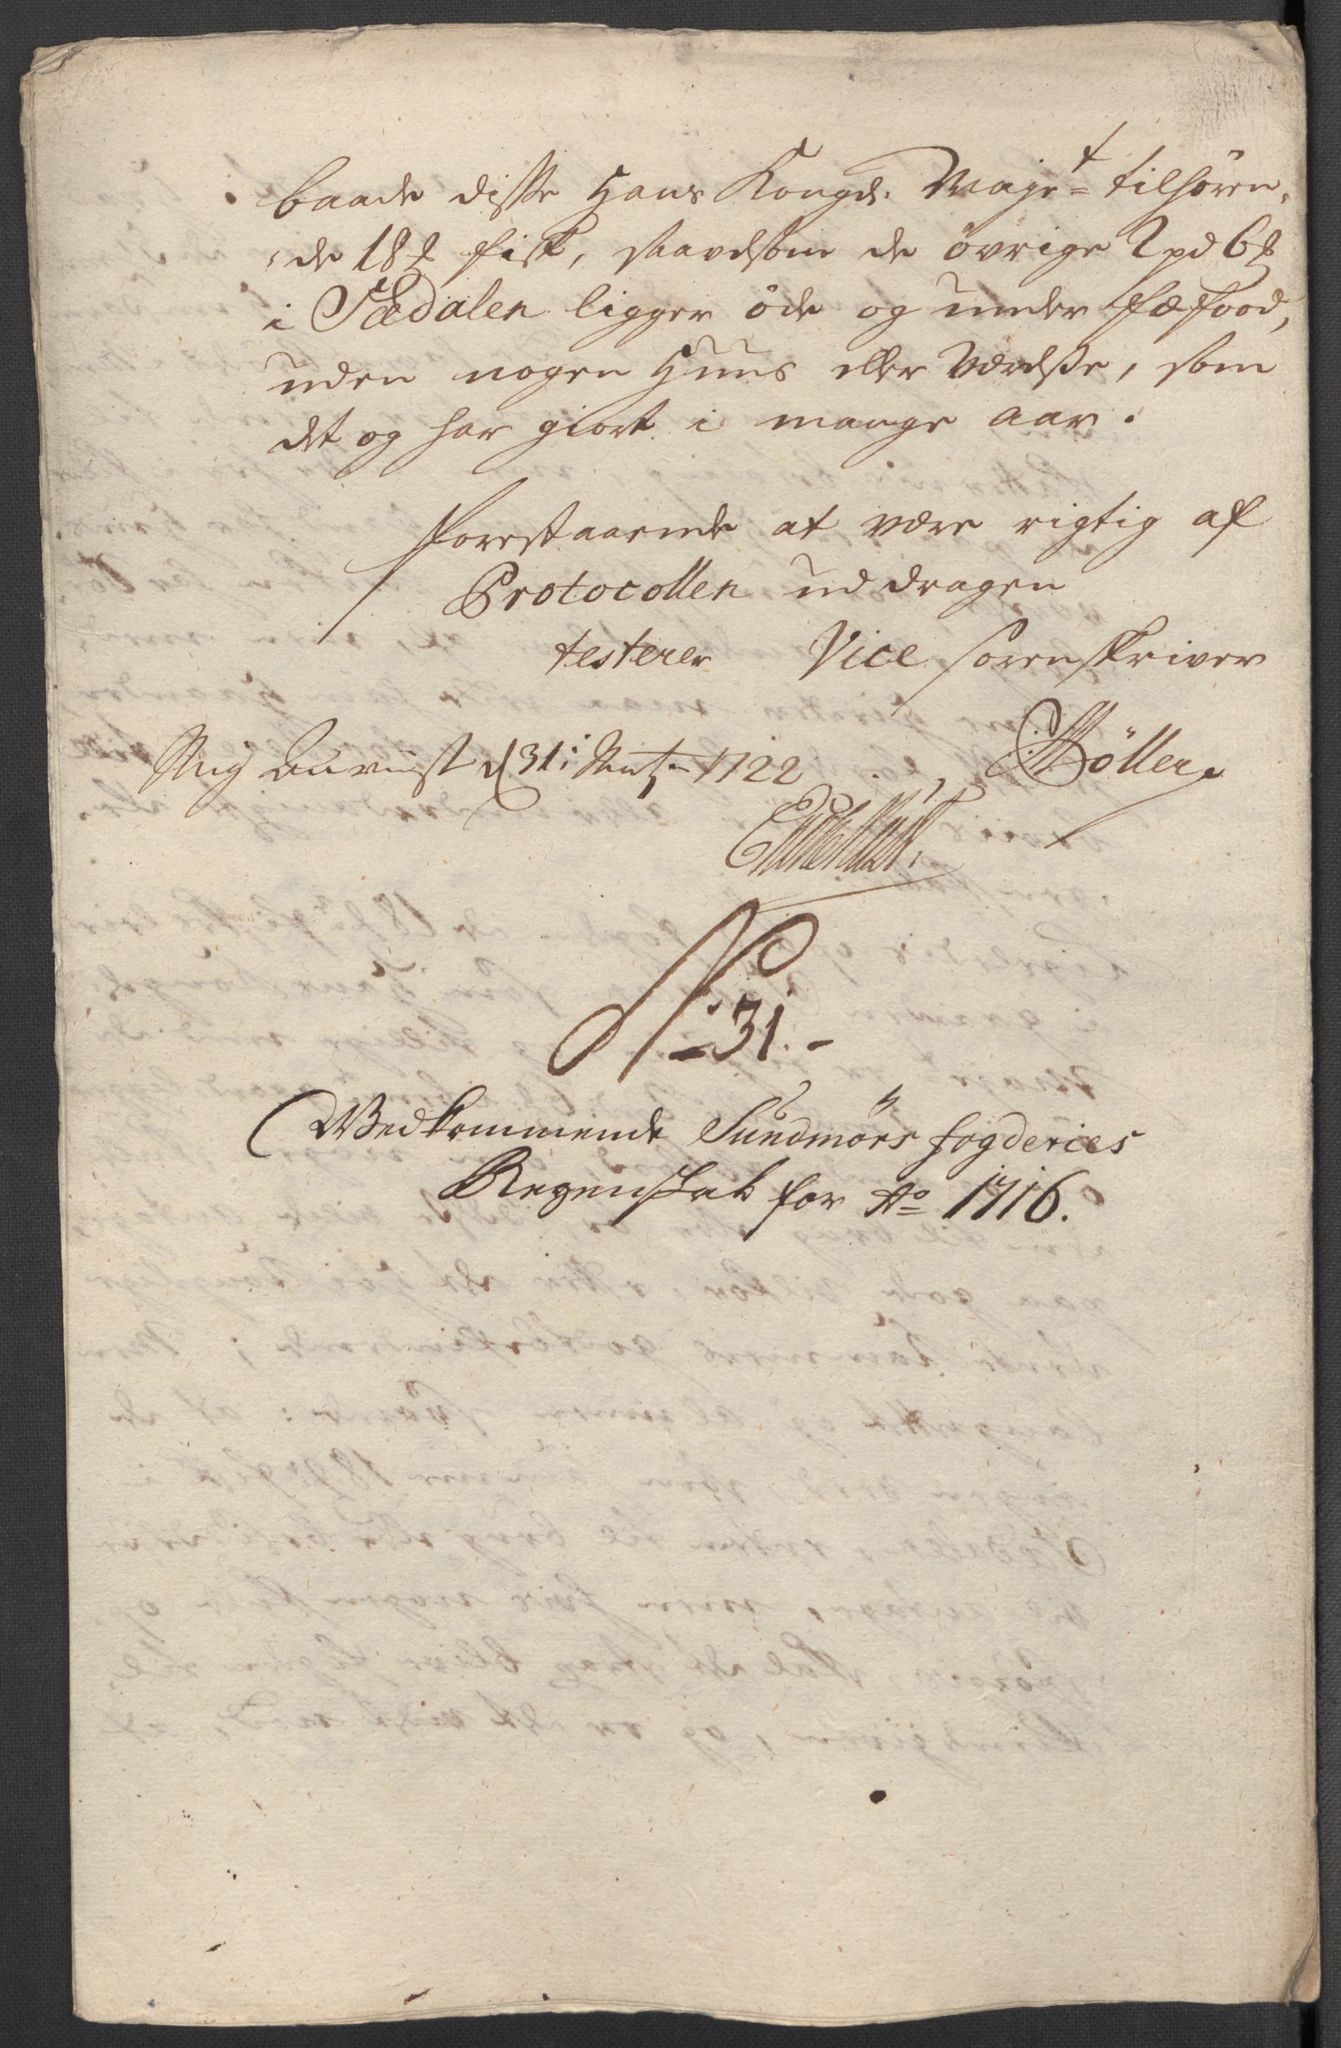 baade disse Hans Kongl. Maje=t tilhøren-
de 18 ℔ fisk, saavelsom de øvrige 2 pd 6 ℔
i Sædalen ligger øde og under fæfood,
uden nogen Huus eller Værelse, som
det og har giort i mange aar.
Forestaaende at være rigtig af
Protocollen uddragen
testerer Vice Sorenskriver
Möller
Mig anvist d 31: 1722
N: 31.
Vedkommende Sundmörs fogderies
Regenskab for Ao 1716.